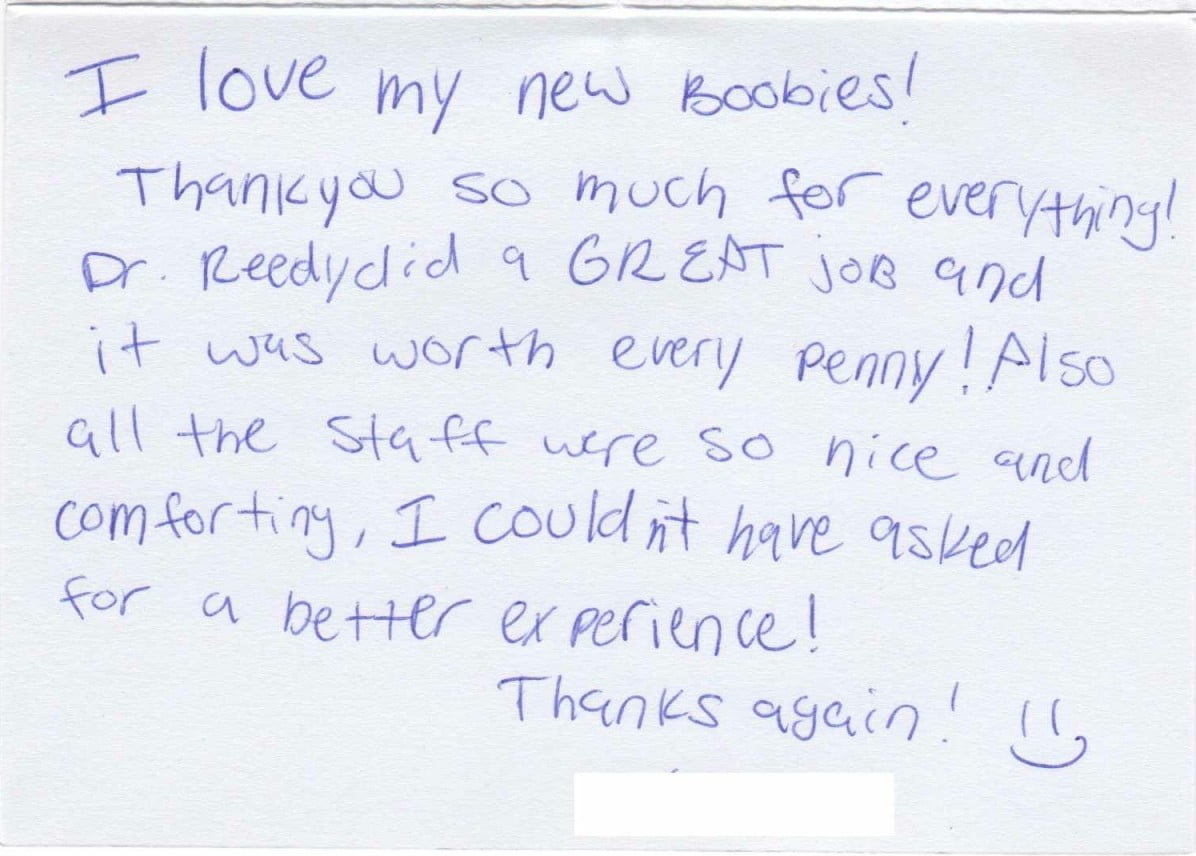 I love my new Boobies!
Thankyou so much for everything!
Dr. Reedy did a GREAT JOB and
it was worth every penny! Also
all the staff were so nice and
comforting, I couldn't have asked
for a better experience!
Thanks again! :)